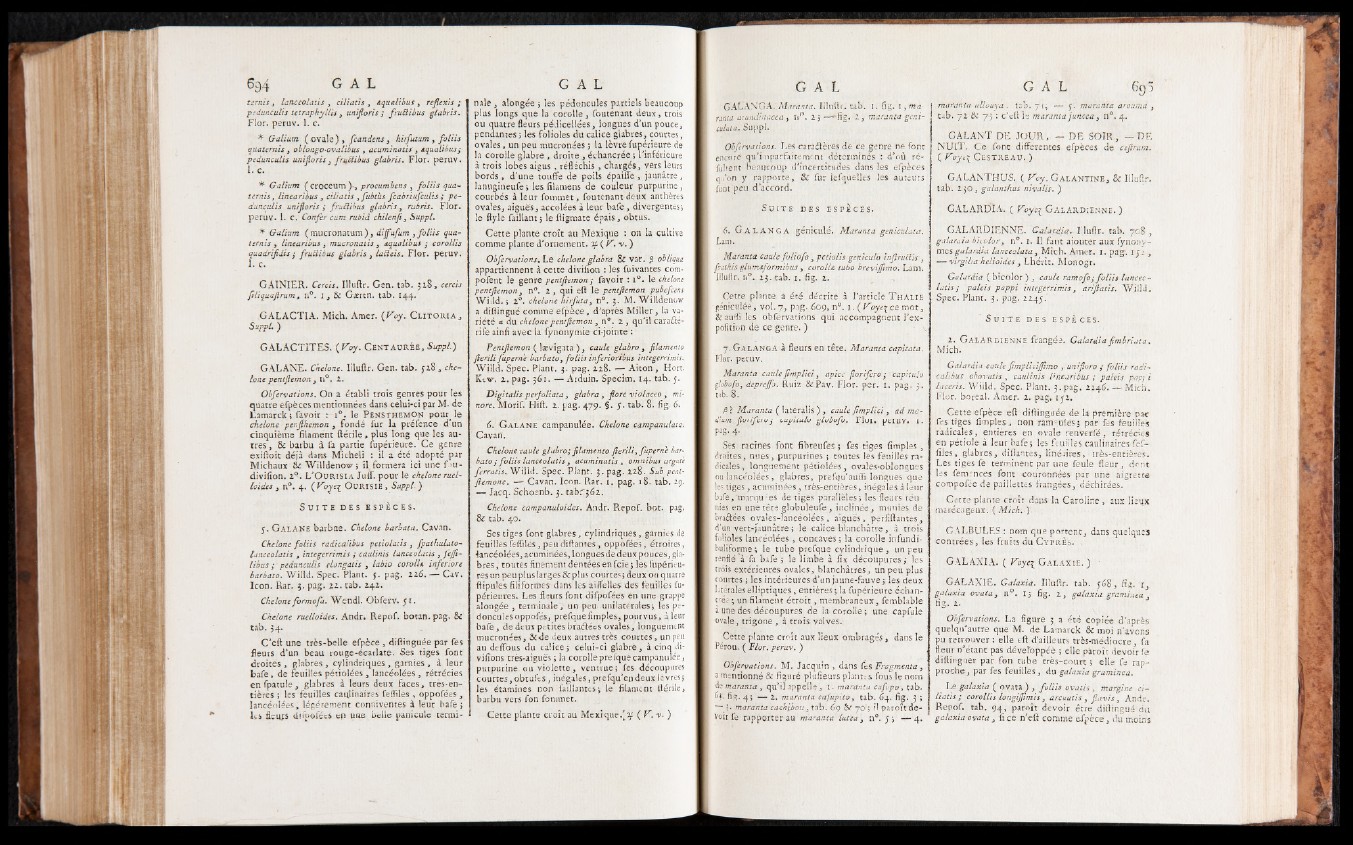 694 G A L
ternis, lanceolatis, ciliatis, æqualibus, reflexis ;
pedunculis tetraphyllis, unifloris ; fructibus glabris.
Flor. peruv. l. c.
* Galium (ovale), scandens, hirsutum, foliis
quaternis, oblongo-ovalibus, acuminatis, æqualibus ;
pedunculis unifloris, fructibus glabris. Flor. peruv.
l. c.
* Galium (croceum), procumbens, foliis qua-
ternis, linearibus, ciliatis, subtùs scabriusculis ; pe-
dunculis unifloris ; fructibus glabris, rubris. Flor.
peruv. l. c. Confer cum rubiâ chilensi, Suppl.
* Galium (mucronatum), diffusum, foliis qua-
ternis, linearibus, mucronatis, æqualibus ; corollis
quadrifidis ; fructibus glabris, lacteis. Flor. peruv.
l. c.
GAINIER. Cercis. Illustr. Gen. tab. 328, cercis
siliquastrum, n°. 1, & Gærtn. tab. 144.
GALACTIA. Mich. Amer. (Voy. CLITORIA,
Suppl.)
GALACTITES. (Voy. CENTAURÉE, Suppl.)
GALANE. Chelone. Illustr. Gen. tab. 528, che-
lone pentstemon, n°. 2.
Observations. On a établi trois genres pour les
quatre espèces mentionnées dans celui-ci par M. de
Lamarck ; savoir : 1°. le PENSTHEMON pour le
chelone pensthemon, fondé sur la présence d'un
cinquième filament stérile, plus long que les au-
tres, & barbu à sa partie supérieure. Ce genre
existoit déjà dans Micheli : il a été adopté par
Michaux & Willdenow ; il formera ici une sous-
division. 2°. L'OURISIA Juss. pour le chelone ruel-
loides, n°. 4. (Voyez OURISIE, Suppl.)
SUITE DES ESPÈCES.
5. GALANE barbue. Chelone barbata. Cavan.
Chelone foliis radicalibus petiolatis, spathulato-
lanceolatis, integerrimis ; caulinis lanceolatis, sessi-
libus ; pedunculis elongatis, labio corollæ inferiore
barbato. Willd. Spec. Plant. 3. pag. 226. — Cav.
Icon. Rar. 3. pag. 22. tab. 242.
Chelone formosa. Wendl. Observ. 51.
Chelone ruelloides. Andr. Repos. botan. pag. &
tab. 34.
C'est une très-belle espèce, distinguée par ses
fleurs d'un beau rouge-écarlate. Ses tiges sont
droites, glabres, cylindriques, garnies, à leur
base, de feuilles pétiolées, lancéolées, rétrécies
en spatule, glabres à leurs deux faces, très-en-
tières ; les feuilles caulinaires sessiles, opposées,
lancéolées, légérement conniventes à leur base ;
les fleurs disposées en une belle panicule termi-
G A L
nale, alongée ; les pédoncules partiels beaucoup
plus longs que la corolle, soutenant deux, trois
ou quatre fleurs pédicellées, longues d'un pouce,
pendantes ; les folioles du calice glabres, courtes,
ovales, un peu mucronées ; la lèvre supérieure de
la corolle glabre, droite, échancrée ; l'inférieure
à trois lobes aigus, réfléchis, chargés, vers leurs
bords, d'une touffe de poils épaisse, jaunâtre,
lanugineuse ; les filamens de couleur purpurine,
courbés à leur sommet, soutenant deux anthères
ovales, aiguës, accolées à leur base, divergentes ;
le style saillant ; le stigmate épais, obtus.
Cette plante croît au Mexique : on la cultive
comme plante d'ornement. ♃ (V. v.)
Observations. Le chelone glabra & var. β obliqua
appartiennent à cette division : les suivantes com-
posent le genre pentstemon ; savoir : 1°. le chelone
pentstemon, n°. 2, qui est le pentstemon pubescens
Willd. ; 2°. chelone hirsuta, n°. 3. M. Willdenow
a distingué comme espèce, d'après Miller, la va-
riété α du chelone pentstemon, n°. 2, qu'il caracté-
rise ainsi avec la synonymie ci-jointe :
Pentstemon (lævigata), caule glabro, filamento
sterili supernè barbato, foliis inferioribus integerrimis.
Willd. Spec. Plant. 3. pag. 228. — Aiton, Hort.
Kew. 2. pag. 361. — Arduin. Specim. 14. tab. 5.
Digitalis perfoliata, glabra, flore violaceo, mi-
nore. Moris. Hist. 2. pag. 479. §. 5. tab. 8. fig. 6.
6. GALANE campanulée. Chelone campanulata.
Cavan.
Chelone caule glabro ; filamento sterili, supernè bar-
bato ; foliis lanceolatis, acuminatis, omnibus argutè
serratis. Willd. Spec. Plant. 3. pag. 228. Sub pent-
stemone. — Cavan. Icon. Rar. 1. pag. 18. tab. 29.
— Jacq. Schoenb. 3. tab. 362.
Chelone campanuloides. Andr. Repos. bot. pag.
& tab. 40.
Ses tiges sont glabres, cylindriques, garnies de
feuilles sessiles, peu distantes, opposées, étroites,
lancéolées, acuminées, longues de deux pouces, gla-
bres, toutes finement dentées en scie ; les supérieu-
res un peu plus larges & plus courtes ; deux ou quatre
stipules filiformes dans les aisselles des feuilles su-
périeures. Les fleurs sont disposées en une grappe
alongée, terminale, un peu unilatérales ; les pé-
doncules opposés, presque simples, pourvus, à leur
base, de deux petites bractées ovales, longuement
mucronées, & de deux autres très-courtes, un peu
au dessous du calice ; celui-ci glabre, à cinq di-
visions très-aiguës ; la corolle presque campanulée,
purpurine ou violette, ventrue ; ses découpures
courtes, obtuses, inégales, presqu'en deux lèvres ;
les étamines non saillantes ; le filament stérile,
barbu vers son sommet.
Cette plante croît au Mexique. ♃ (V. v.)
G A L
GALANGA. Maranta. Illustr. tab. 1. fig. 1, ma-
ranta arundinacea, n°. 23 — fig. 2, maranta geni-
culata. Suppl.
Observations. Les caractères de ce genre ne sont
encore qu'imparfaitement déterminés : d'où ré-
sultent beaucoup d'incertitudes dans les espèces
qu'on y rapporte, & sur lesquelles les auteurs
sont peu d'accord.
SUITE DES ESPÈCES.
6. GALANGA géniculé. Maranta geniculata.
Lam.
Maranta caule folioso, petiolis geniculo instructis,
spathis glumæformibus, corollæ tubo brevissimo. Lam.
Illustr. n°. 23. tab. 1. fig. 2.
Cette plante a été décrite à l'article THALIE
géniculée, vol. 7, pag. 609, n°. 1. (Voyez ce mot,
& aussi les observations qui accompagnent l'ex-
position de ce genre.)
7. GALANGA à fleurs en tête. Maranta capitata.
Flor. peruv.
Maranta caule simplici, apice florifero ; capitulo
globoso, depresso. Ruiz & Pav. Flor. per. 1. pag. 3.
tab. 8.
β? Maranta (lateralis), caule simplici, ad me-
dium florifero ; capitulo globoso. Flor. peruv. 1.
pag. 4.
Ses racines sont fibreuses ; ses tiges simples,
droites, nues, purpurines ; toutes les feuilles ra-
dicales, longuement pétiolées, ovales-oblongues
ou lancéolées, glabres, presqu'aussi longues que
les tiges, acuminées, très-entières, inégales à leur
base, marquées de tiges parallèles ; les fleurs réu-
nies en une tête globuleuse, inclinée, munies de
bractées ovales-lancéolées, aiguës, persistantes,
d'un vert-jaunâtre ; le calice blanchâtre, à trois
folioles lancéolées, concaves ; la corolle infundi-
buliforme ; le tube presque cylindrique, un peu
renflé à sa base ; le limbe à six découpures ; les
trois extérieures ovales, blanchâtres, un peu plus
courtes ; les intérieures d'un jaune-fauve ; les deux
latérales elliptiques, entières ; la supérieure échan-
crée ; un filament étroit, membraneux, semblable
à une des découpures de la corolle ; une capsule
ovale, trigone, à trois valves.
Cette plante croît aux lieux ombragés, dans le
Pérou. (Flor. peruv.)
Observations. M. Jacquin, dans ses Fragmenta,
a mentionné & figuré plusieurs plantes sous le nom
de maranta, qu'il appelle, 1. maranta casupo, tab.
63. fig. 43 — 2. maranta casupito, tab. 64. fig. 3 ;
— 3. maranta cachibou, tab. 69 & 70 ; il paroît de-
voir se rapporter au maranta lutea, n°. 5 ; — 4.
G A L 695
maranta allouya, tab. 71, — 5. maranta arouma,
tab. 72 & 73 : c'est le maranta juncea, n°. 4.
GALANT DE JOUR, — DE SOIR, — DE
NUIT. Ce sont différentes espèces de cestrum.
(Voyez CESTREAU.)
GALANTHUS. (Voy. GALANTINE, & Illustr.
tab. 230, galanthus nivalis.)
GALARDIA. (Voyez GALARDIENNE.)
GALARDIENNE. Galardia. Illustr. tab. 708,
galardia bicolor, n°. 1. Il faut ajouter aux synony-
mes galardia lanceolata, Mich. Amer. 1. pag. 152,
— virgilia helioides, Lhérit. Monogr.
Galardia (bicolor), caule ramoso ; foliis lanceo-
latis ; paleis pappi integerrimis, aristatis. Willd.
Spec. Plant. 3. pag. 2245.
SUITE DES ESPÈCES.
2. GALARDIENNE frangée. Galardia fimbriata.
Mich.
Galardia caule simplicissimo, unifloro ; foliis radi-
calibus obovatis, caulinis linearibus ; paleis pappi
laceris. Willd. Spec. Plant. 3. pag. 2246. — Mich.
Flor. boreal. Amer. 2. pag. 152.
Cette espèce est distinguée de la première par
ses tiges simples, non rameuses ; par ses feuilles
radicales, entières en ovale renversé, rétrécies
en pétiole à leur base ; les feuilles caulinaires ses-
siles, glabres, distantes, linéaires, très-entières.
Les tiges se terminent par une seule fleur, dont
les semences sont couronnées par une aigrette
composée de paillettes frangées, déchirées.
Cette plante croît dans la Caroline, aux lieux
marécageux. (Mich.)
GALBULES : nom que portent, dans quelques
contrées, les fruits du CYPRÈS.
GALAXIA. (Voyez GALAXIE.)
GALAXIE. Galaxia. Illustr. tab. 568, fig. 1,
galaxia ovata, n°. 1 ; fig. 2, galaxia graminea,
fig. 2.
Observations. La figure 3 a été copiée d'après
quelqu'autre que M. de Lamarck & moi n'avons
pu retrouver : elle est d'ailleurs très-médiocre, sa
fleur n'étant pas développée ; elle paroît devoir se
distinguer par son tube très-court ; elle se rap-
proche, par ses feuilles, du galaxia graminea.
Le galaxia (ovata), foliis ovatis, margine ci-
liatis ; corollis longissimis, arcuatis, flavis, Andr.
Repos. tab. 94, paroît devoir être distingué du
galaxia ovata, si ce n'est comme espèce, du moins